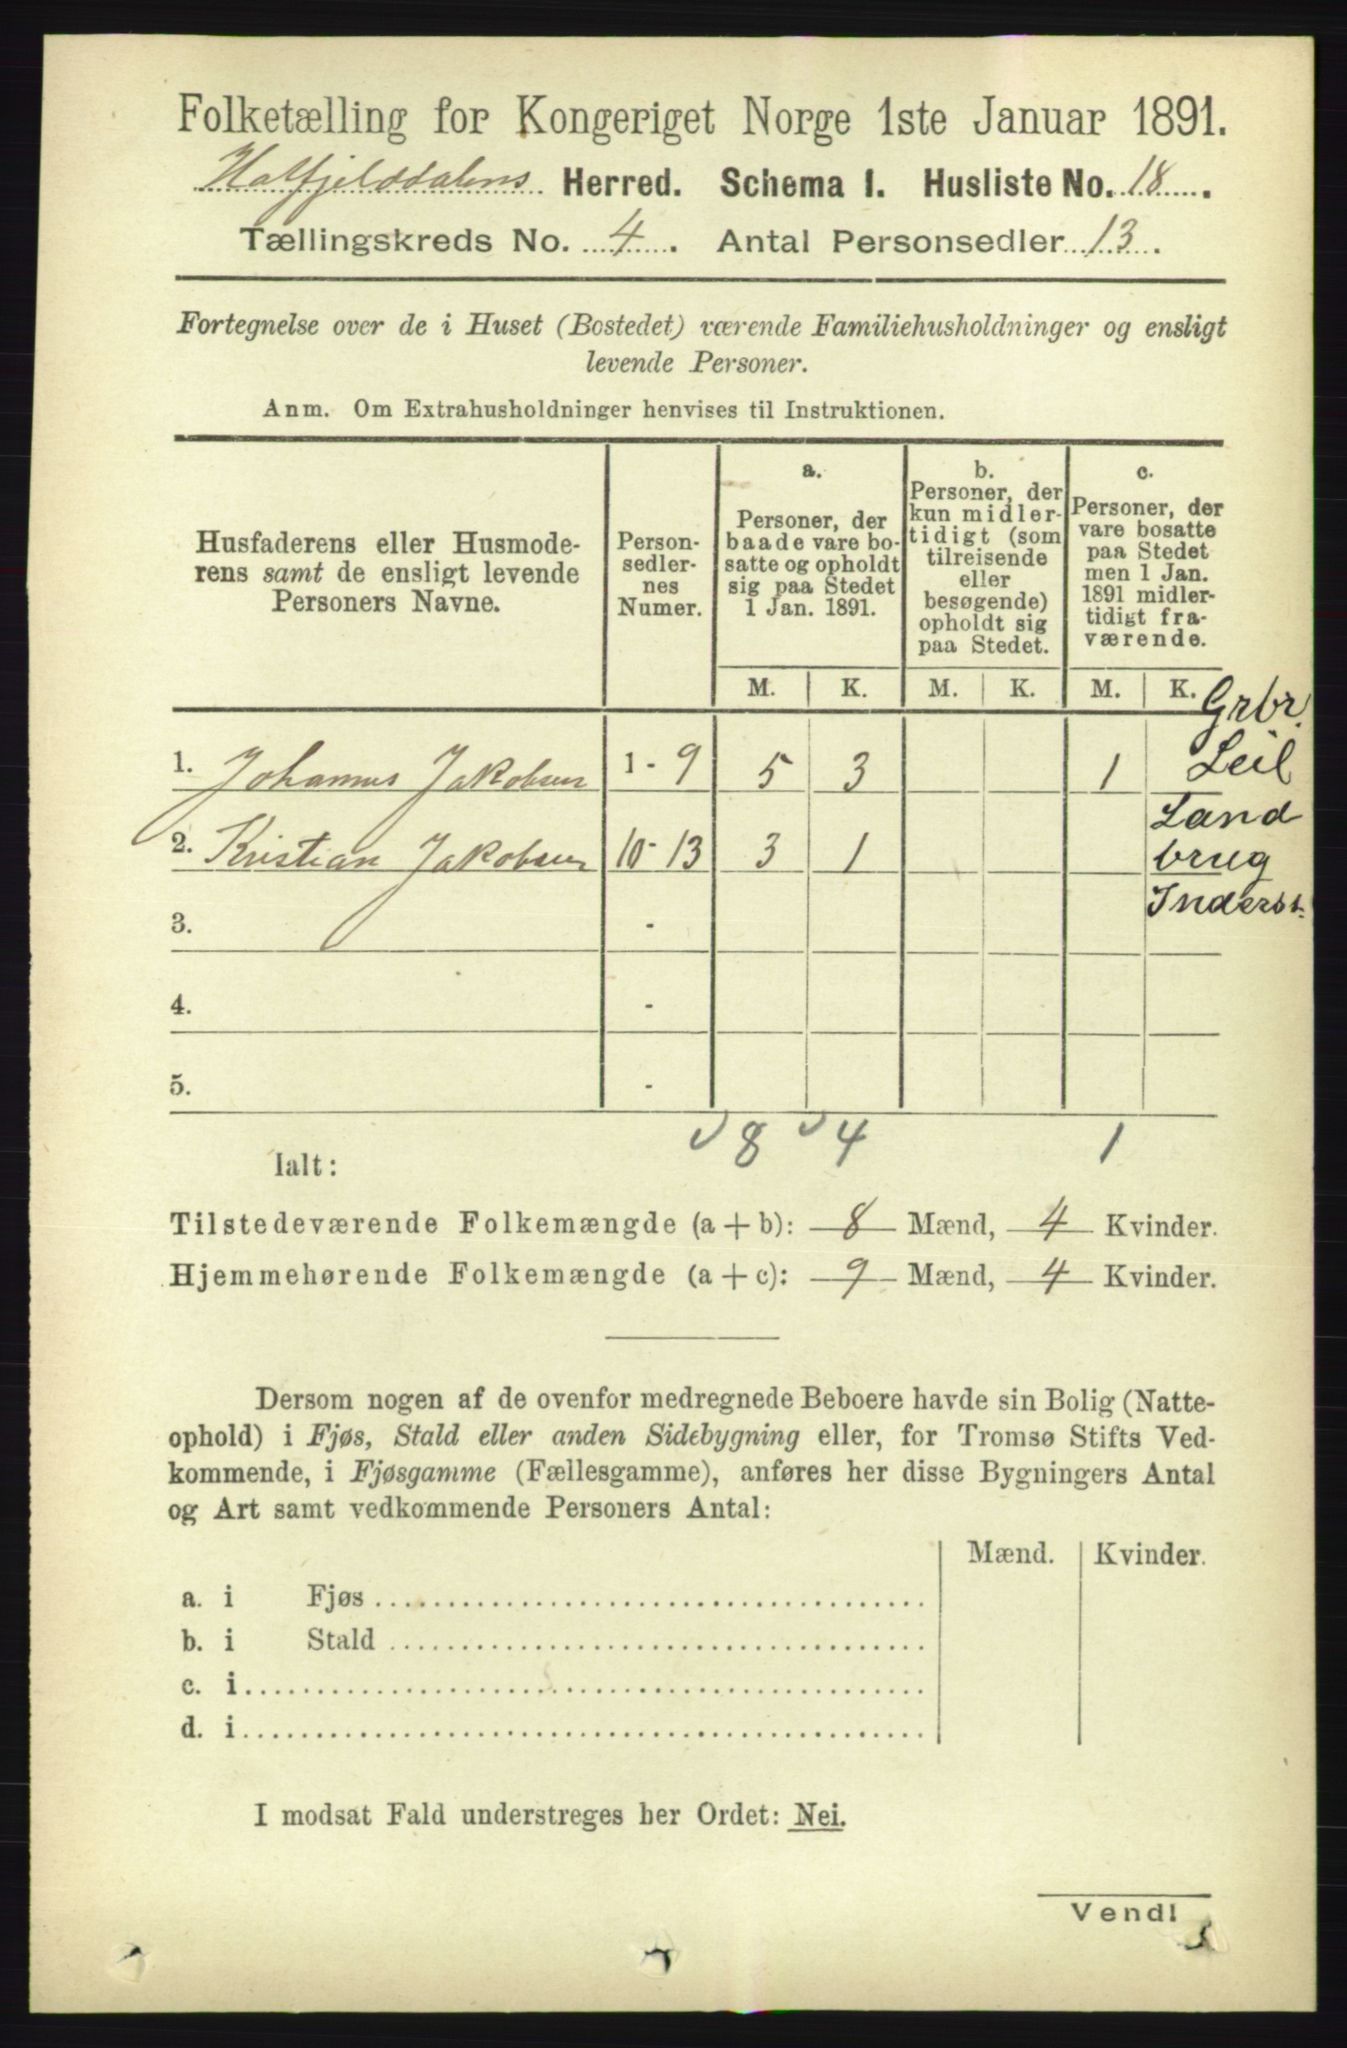 Folketælling for Kongeriget Norge 1ste Januar 1891.
Hatfjelddalens Herred. Schema 1. Husliste No. 18.
Tællingskreds No. 4. Antal Personsedler 13.
Fortegnelse over de i Huset (Bostedet) værende Familiehusholdninger og ensligt
levende Personer.
Anm. Om Extrahusholdninger henvises til Instruktionen.
Husfaderens eller Husmode-
rens samt de ensligt levende
Personers Navne.
Person-
sedler-
nes
Numer.
a.
Personer, der
baade vare bo-
satte og opholdt
sig paa Stedet
1 Jan. 1891.
b.
Personer, der
kun midler-
tidigt (som
tilreisende
eller
besøgende)
opholdt sig
paa Stedet.
c.
Personer, der
vare bosatte
paa Stedet
men 1 Jan.
1891 midler-
tidigt fra-
værende.
M. K. M. K. M. K.
Grbr.
1. Johannes Jakobsen 1 - 9 5 3 1 Leil
Land
2. Kristian Jakobsen 10 - 13 3 1 brug
Inderst.
3. -
4. -
5. -
8 4 1
Ialt:
Tilstedeværende Folkemængde (a + b): 8 Mænd, 4 Kvinder.
Hjemmehørende Folkemængde (a + c): 9 Mænd, 4 Kvinder.
Dersom nogen af de ovenfor medregnede Beboere havde sin Bolig (Natte-
ophold) i Fjøs, Stald eller anden Sidebygning eller, for Tromsø Stifts Ved-
kommende, i Fjøsgamme (Fællesgamme), anføres her disse Bygningers Antal
og Art samt vedkommende Personers Antal:
Mænd. Kvinder.
a. i Fjøs
b. i Stald
c. i
d. i
I modsat Fald understreges her Ordet: Nei.
Vend!